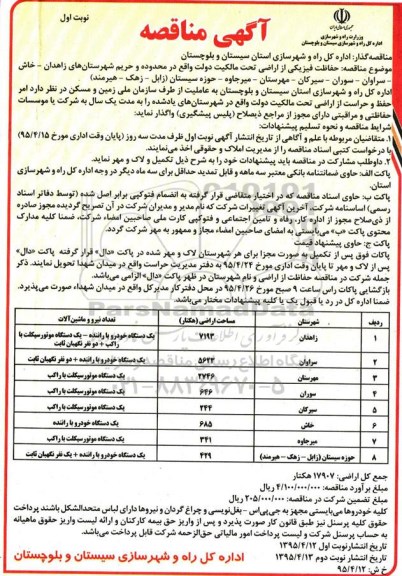 نوبت اول
آگهی مناقصه
وزارت راه و شهرسازی
اداره کل راه و شهرسازی سیستان و بلوچستان
مناقصه‌گذار: اداره کل راه و شهرسازی استان سیستان و بلوچستان
موضوع مناقصه: حفاظت فیزیکی از اراضی تحت مالکیت دولت واقع در محدوده و حریم شهرستان‌های زاهدان - خاش
- سراوان - سوران - سیرکان - مهرستان - میرجاوه - حوزه سیستان (زابل - زهک - هیرمند)
اداره کل راه و شهرسازی استان سیستان و بلوچستان به عاملیت از طرف سازمان ملی زمین و مسکن در نظر دارد امر
حفظ و حراست از اراضی تحت مالکیت دولت واقع در شهرستان‌های یادشده را به مدت یک سال به شرکت یا موسسات
حفاظتی و مراقبتی دارای مجوز از مراجع ذیصلاح (پلیس پیشگیری) واگذار نماید:
شرایط مناقصه و نحوه تسلیم پیشنهادات:
۱. متقاضیان مربوطه با علم و آگاهی از تاریخ انتشار آگهی نوبت اول ظرف مدت سه روز (پایان وقت اداری مورخ ۹۵/۴/۱۵)
با درخواست کتبی اسناد مناقصه را از مدیریت املاک و حقوقی اخذ می‌نمایند.
۲. داوطلب مشارکت در مناقصه باید پیشنهادات خود را به شرح ذیل تکمیل و لاک و مهر نماید.
پاکت الف: حاوی ضمانتنامه بانکی معتبر سه ماهه و قابل تمدید حداقل برای سه ماه دیگر در وجه اداره کل راه و شهرسازی
استان.
پاکت ب: حاوی اسناد مناقصه که در اختیار متقاضی قرار گرفته به انضمام فتوکپی برابر اصل شده (توسط دفاتر اسناد
رسمی) اساسنامه شرکت، آخرین آگهی تغییرات شرکت که نام مدیر و مدیران شرکت در آن تصریح گردیده مجوز صادره
از ذی‌صلاح مجوز از اداره کار، رفاه و تامین اجتماعی و فتوکپی کارت ملی صاحبین امضاء شرکت، ضمنا کلیه مدارک
محتوی پاکت «ب» می‌بایستی به امضای صاحبین امضاء مجاز و ممهور به مهر شرکت گردد.
پاکت ج: حاوی پیشنهاد قیمت
پاکات فوق پس از تکمیل به صورت مجزا برای هر شهرستان لاک و مهر شده در پاکت «دال» قرار گرفته پاکت «دال»
پس از لاک و مهر تا پایان وقت اداری مورخ ۹۵/۴/۲۴ به دفتر مدیریت حراست واقع در میدان شهدا تحویل نمایند. ذکر
جمله شرکت در مناقصه حفاظت از اراضی و نام شهرستان در ظهر پاکت «دال» الزامی می‌باشد.
بازگشایی پاکات راس ساعت ۹ صبح مورخ ۹۵/۴/۲۶ در محل دفتر کار مدیرکل واقع در میدان شهداء صورت می‌پذیرد.
ضمنا اداره کل در رد یا قبول یک یا کلیه پیشنهادات مختار می‌باشد.
ردیف شهرستان مساحت اراضی (هکتار) تعداد نیرو و ماشین‌آلات
۱ زاهدان ۷۱۹۲ یک دستگاه خودرو با راننده - یک دستگاه موتورسیکلت با راکب + دو نفر نگهبان ثابت
۲ سراوان ۵۶۲۳ یک دستگاه خودرو با راننده + دو نفر نگهبان ثابت
۳ مهرستان ۲۷۴۶ یک دستگاه موتورسیکلت با راکب
۴ سوران ۶۴۶ یک دستگاه موتورسیکلت با راکب
۵ سیرکان ۲۴۴ یک دستگاه موتورسیکلت با راکب
۶ خاش ۶۸۵ یک دستگاه خودرو با راننده
۷ میرجاوه ۳۴۱ یک دستگاه موتورسیکلت با راکب
۸ حوزه سیستان (زابل - زهک - هیرمند) ۴۲۹ یک دستگاه خودرو با راننده + یک نفر نگهبان ثابت
جمع کل اراضی: ۱۷۹۰۷ هکتار
مبلغ برآورد مناقصه: ۴/۱۰۰/۰۰۰/۰۰۰ ریال
مبلغ تضمین شرکت در مناقصه: ۲۰۵/۰۰۰/۰۰۰ ریال
کلیه خودروها می‌بایستی مجهز به جی‌پی‌اس - بغل‌نویسی و چراغ گردان و نیروها دارای لباس متحدالشکل باشند پرداخت
حقوق کلیه پرسنل نیز طبق قانون کار صورت پذیرد و پس از واریز حق بیمه کارکنان و ارائه لیست واریز حقوق ماهیانه
به حساب پرسنل شرکت و لیست پرداخت امور مالیاتی حق‌الزحمه شرکت قابل پرداخت می‌باشد.
تاریخ انتشار نوبت اول ۱۳۹۵/۴/۱۲
تاریخ انتشار نوبت دوم ۱۳۹۵/۴/۱۳
خ ش: ۹۵/۴/۱۲
اداره کل راه و شهرسازی سیستان و بلوچستان
ParsNamadData